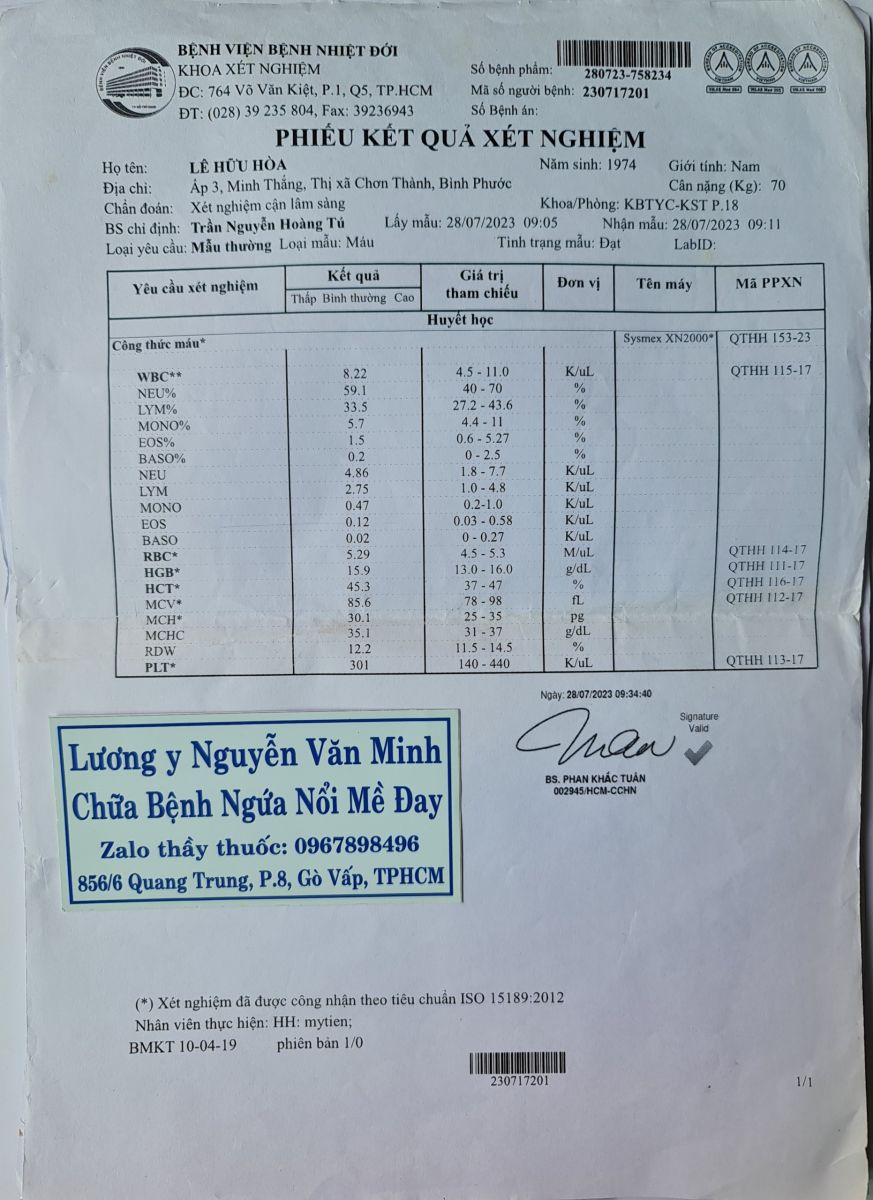 BỆNH VIỆN BỆNH NHIỆT ĐỚI
KHOA XÉT NGHIỆM
ĐC: 764 Võ Văn Kiệt, P.1, Q5, TP.HCM
ĐT: (028) 39 235 804, Fax: 39236943
Số bệnh phẩm: 280723-758234
Mã số người bệnh: 230717201
Số Bệnh án:
PHIẾU KẾT QUẢ XÉT NGHIỆM
Họ tên: LÊ HỮU HÒA Năm sinh: 1974 Giới tính: Nam
Địa chỉ: Ấp 3, Minh Thắng, Thị xã Chơn Thành, Bình Phước Cân nặng (Kg): 70
Chẩn đoán: Xét nghiệm cận lâm sàng Khoa/Phòng: KBTYC-KST P.18
BS chỉ định: Trần Nguyễn Hoàng Tú Lấy mẫu: 28/07/2023 09:05 Nhận mẫu: 28/07/2023 09:11
Loại yêu cầu: Mẫu thường Loại mẫu: Máu Tình trạng mẫu: Đạt LabID:
Yêu cầu xét nghiệm Kết quả Giá trị tham chiếu Đơn vị Tên máy Mã PPXN
Thấp Bình thường Cao
Huyết học
Công thức máu* Sysmex XN2000* QTHH 153-23
WBC** 8.22 4.5 - 11.0 K/uL QTHH 115-17
NEU% 59.1 40 - 70 %
LYM% 33.5 27.2 - 43.6 %
MONO% 5.7 4.4 - 11 %
EOS% 1.5 0.6 - 5.27 %
BASO% 0.2 0 - 2.5 %
NEU 4.86 1.8 - 7.7 K/uL
LYM 2.75 1.0 - 4.8 K/uL
MONO 0.47 0.2-1.0 K/uL
EOS 0.12 0.03 - 0.58 K/uL
BASO 0.02 0 - 0.27 K/uL
RBC* 5.29 4.5 - 5.3 M/uL QTHH 114-17
HGB* 15.9 13.0 - 16.0 g/dL QTHH 111-17
HCT* 45.3 37 - 47 % QTHH 116-17
MCV* 85.6 78 - 98 fL QTHH 112-17
MCH* 30.1 25 - 35 pg
MCHC 35.1 31 - 37 g/dL
RDW 12.2 11.5 - 14.5 %
PLT* 301 140 - 440 K/uL QTHH 113-17
Ngày: 28/07/2023 09:34:40
Signature
Valid
BS. PHAN KHẮC TUẤN
002945/HCM-CCHN
Lương y Nguyễn Văn Minh
Chữa Bệnh Ngứa Nổi Mề Đay
Zalo thầy thuốc: 0967898496
856/6 Quang Trung, P.8, Gò Vấp, TPHCM
(*) Xét nghiệm đã được công nhận theo tiêu chuẩn ISO 15189:2012
Nhân viên thực hiện: HH: mytien;
BMKT 10-04-19 phiên bản 1/0
230717201
1/1